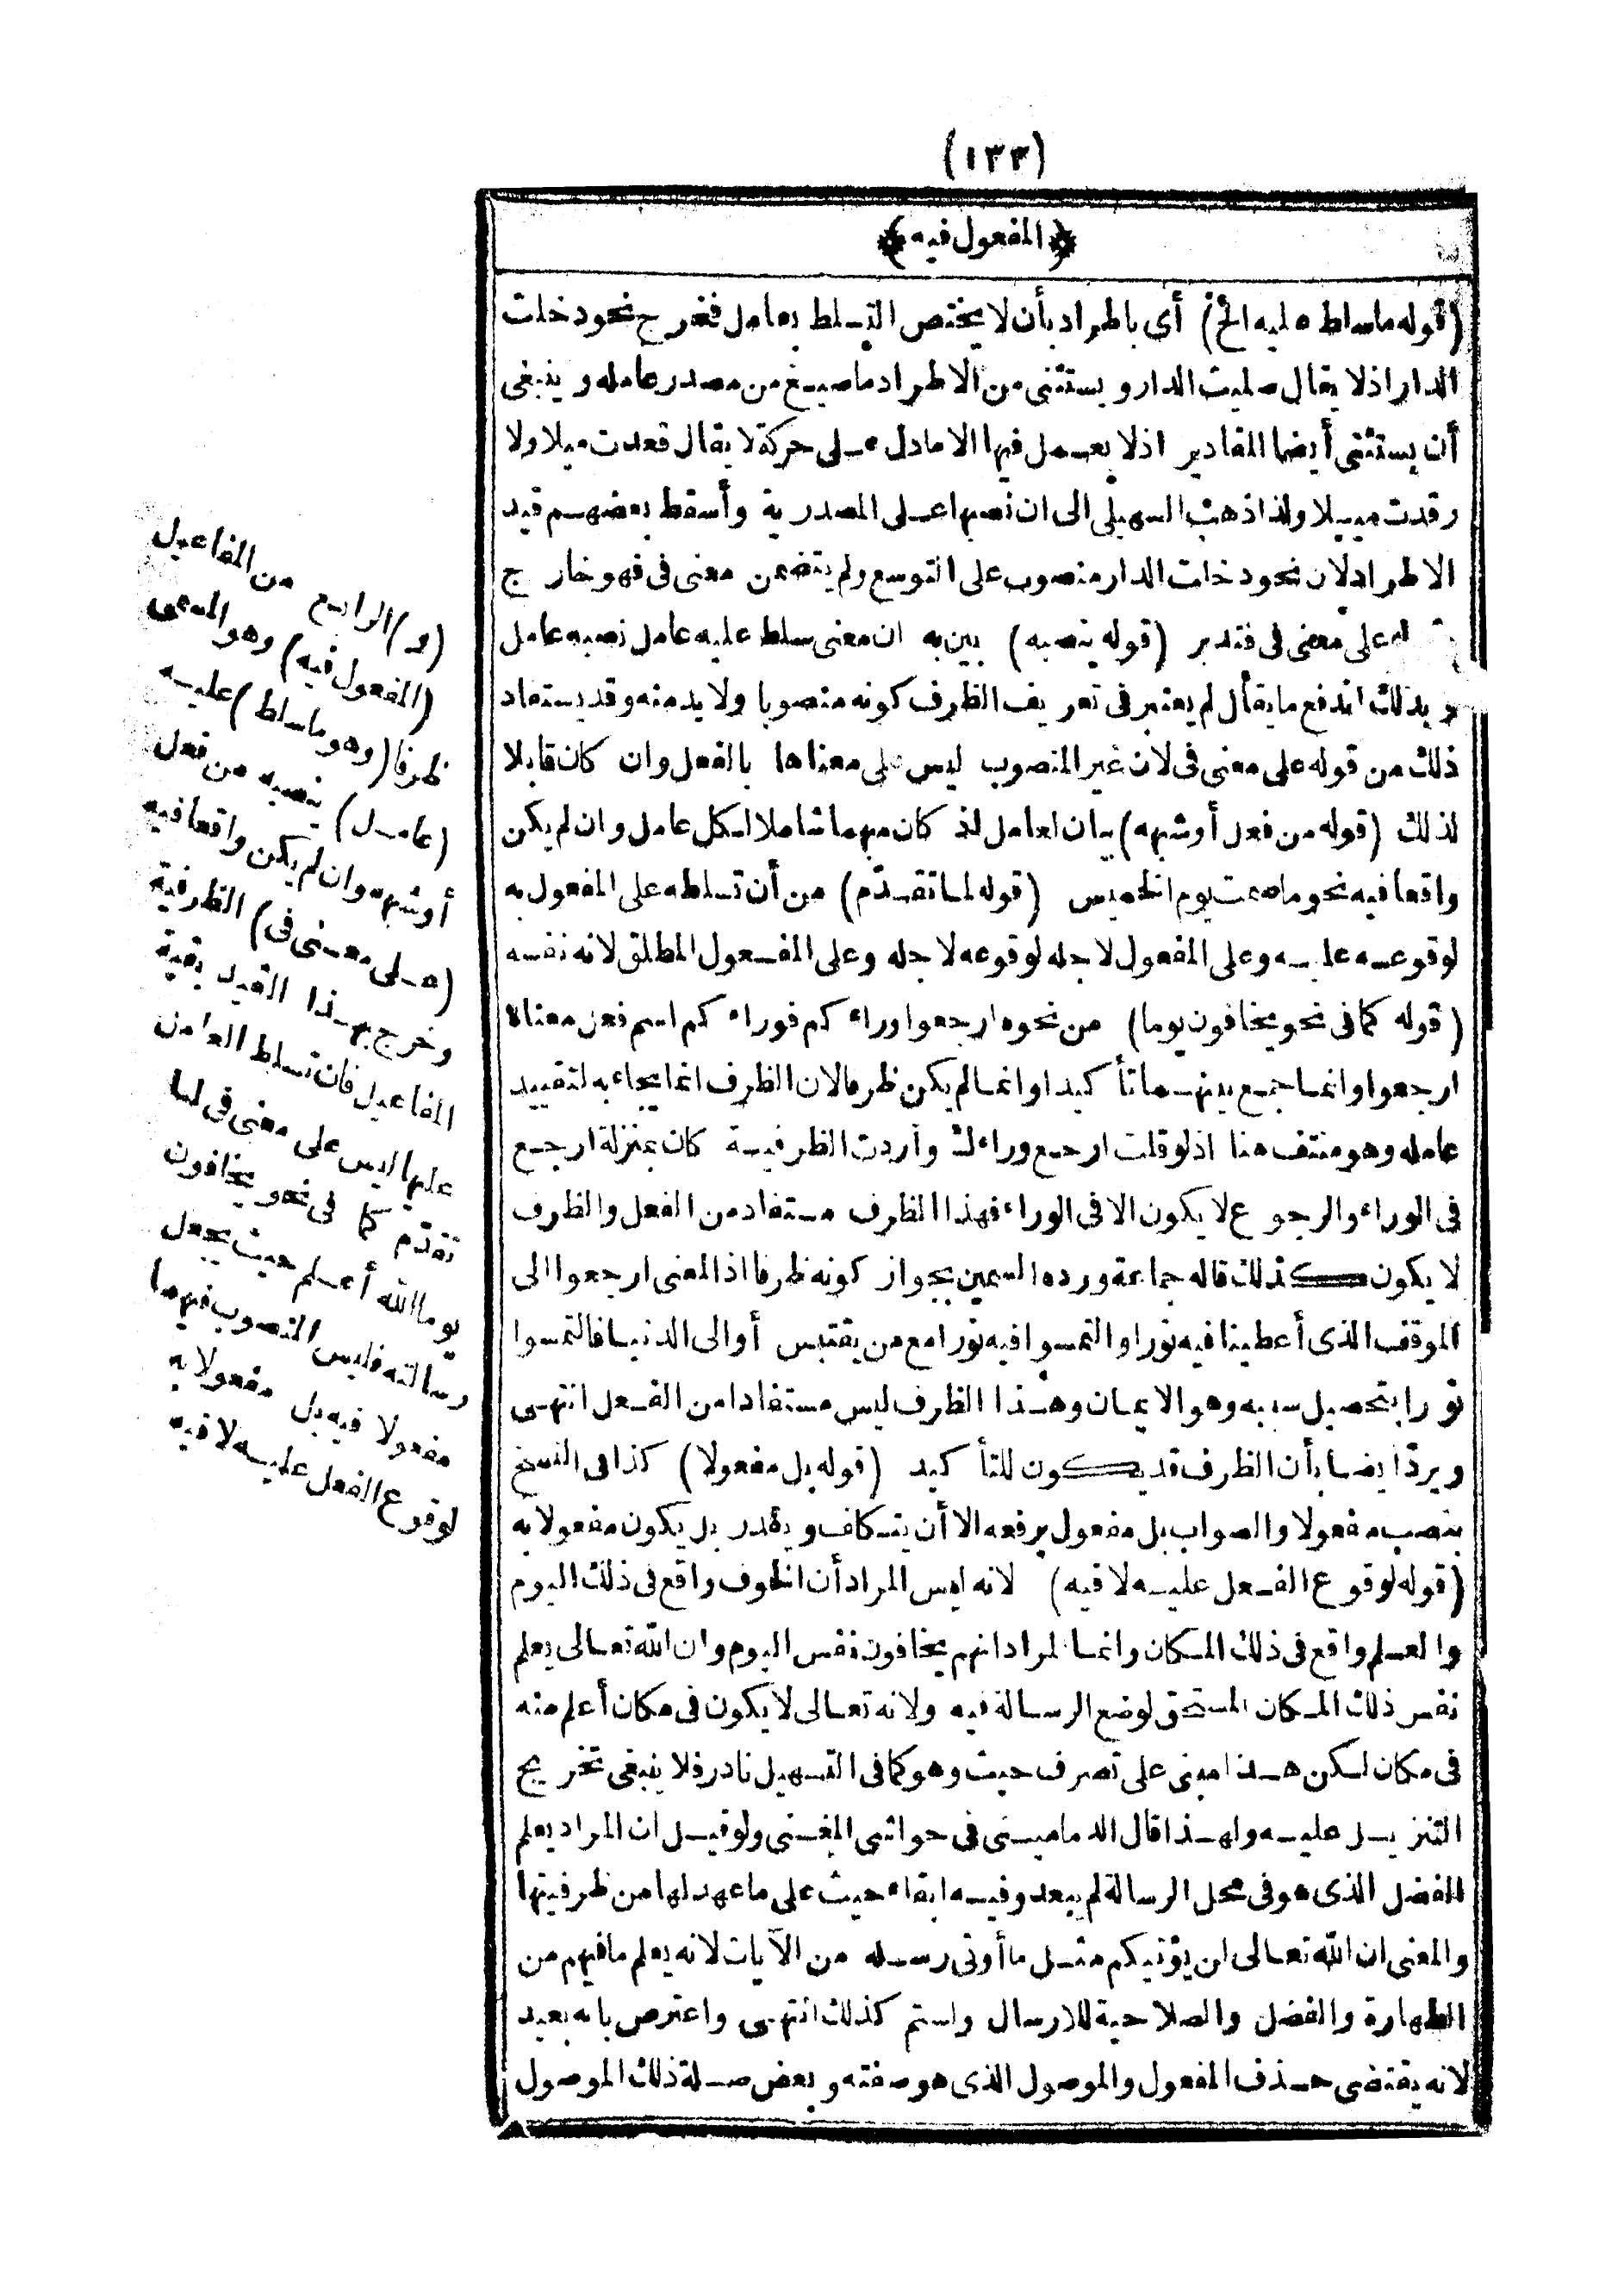 (١٣٣)
﴿المفعول فيه﴾
(قوله ما سلط عليه الخ) أى باطراد بأن لا يختص التسلط بعامل فخرج نحو دخلت
الدار اذ لا يقال صليت الدار ويستثنى من الاطراد ما صيغ من مصدر عامله وينبغى
أن يستثنى أيضا المقادير اذ لا يعمل فيها الا ما دل على حركة لا يقال قعدت ميلا ولا
رقدت ميلا ولذا ذهب السهيلى الى ان نصبها على المصدرية وأسقط بعضهم قيد
الاطراد لان نحو دخلت الدار منصوب على التوسع ولم يتضمن معنى فى فهو خارج
على معنى فى فتدبر (قوله ينصبه) بين به ان معنى سلط عليه عامل نصبه عامل
وبذلك اندفع ما يقال لم يعتبر فى تعريف الظرف كونه منصوبا ولا بد منه وقد يستفاد
ذلك من قوله على معنى فى لان غير المنصوب ليس على معناها بالفعل وان كان قابلا
لذلك (قوله من فعل أو شبهه) بيان لعامل اذ كان مبهما شاملا لكل عامل وان لم يكن
واقعا فيه نحو ما صمت يوم الخميس (قوله لما تقدّم) من أن تسلطه على المفعول به
لوقوعه عليه وعلى المفعول لاجله لوقوعه لاجله وعلى المفعول المطلق لانه نفسه
(قوله كما فى نحو يخافون يوما) من نحوه ارجعوا وراءكم فوراءكم اسم فعل معناه
ارجعوا وانما جمع بينهما تأكيدا وانما لم يكن ظرفا لان الظرف انما يجاء به لتقييد
عامله وهو منتف هنا اذ لو قلت ارجع وراءك وأردت الظرفية كان بمنزلة ارجع
فى الوراء والرجوع لا يكون الا فى الوراء فهذا الظرف مستفاد من الفعل والظرف
لا يكون كذلك قاله جماعة ورده السمين بجواز كونه ظرفا اذ المعنى ارجعوا الى
الموقف الذى أعطينا فيه نورا والتمسوا فيه نورا مع من يقتبس أو الى الدنيا فالتمسوا
نورا بتحصيل سببه وهو الايمان وهذا الظرف ليس مستفادا من الفعل انتهى
ويردّ أيضا بأن الظرف قد يكون للتأكيد (قوله بل مفعولا) كذا فى النسخ
بنصب مفعولا والصواب بل مفعول برفعه الا أن يتكلف ويقدر بل يكون مفعولا به
(قوله لوقوع الفعل عليه لا فيه) لانه ليس المراد أن الخوف واقع فى ذلك اليوم
والعلم واقع فى ذلك المكان وانما المراد انهم يخافون نفس اليوم وان الله تعالى يعلم
نفس ذلك المكان المستحق لوضع الرسالة فيه ولانه تعالى لا يكون فى مكان أعلم منه
فى مكان لكن هذا مبنى على تصرف حيث وهو كما فى التسهيل نادر فلا ينبغى تخريج
التنزيل عليه ولهذا قال الدمامينى فى حواشى المغنى ولو قيل ان المراد يعلم
الفضل الذى هو فى محل الرسالة لم يبعد وفيه ابقاء حيث على ما عهد لها من ظرفيتها
والمعنى ان الله تعالى لن يؤتيكم مثل ما أوتى رسله من الآيات لانه يعلم ما فيهم من
الطهارة والفضل والصلاحية للارسال ولستم كذلك انتهى واعترض بانه بعيد
لانه يقتضى حذف المفعول والموصول الذى هو صفته وبعض صلة ذلك الموصول
(و) الرابع من المفاعيل
(المفعول فيه) وهو المسمى
ظرفا (وهو ما سلط) عليه
(عامل) ينصبه من فعل
أو شبهه وان لم يكن واقعا فيه
(على معنى فى) الظرفية
وخرج بهذا القيد بقية
المفاعيل فان تسلط العامل
عليها ليس على معنى فى لما
تقدّم كما فى نحو يخافون
يوما الله أعلم حيث يجعل
رسالته فليس المنصوب فيهما
مفعولا فيه بل مفعولا به
لوقوع الفعل عليه لا فيه